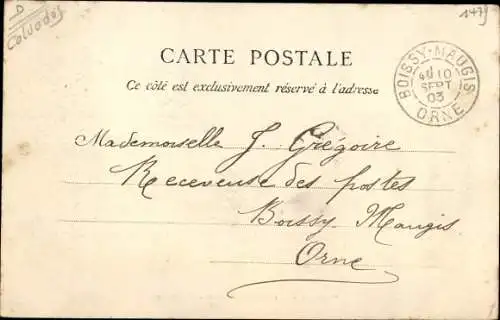 D
Calvados
1479
CARTE POSTALE
Ce côté est exclusivement réservé à l'adresse
BOISSY-MAUGIS
10
SEPT
03
ORNE
Mademoiselle J. Grégoire
Receveuse des postes
Boissy Maugis
Orne